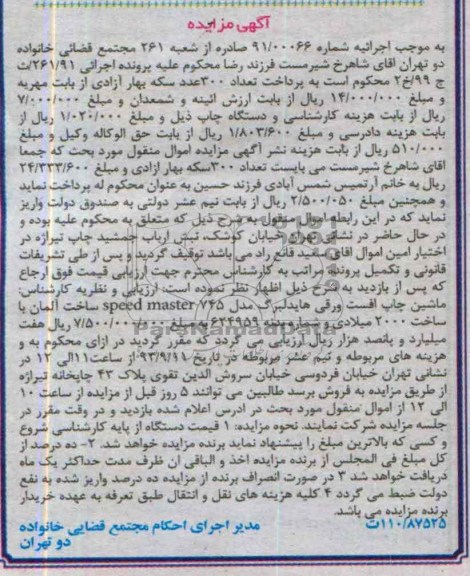 آگهی مزایده
به موجب اجرائیه شماره ۹۱/۰۰۰۶۶ صادره از شعبه ۲۶۱ مجتمع قضائی خانواده
دو تهران اقای شاهرخ شیرمست فرزند رضا محکوم علیه پرونده اجرائی ۲۶۱/۹۱/ث
ج ۹۹/خ۲ محکوم است به پرداخت تعداد ۳۰۰عدد سکه بهار آزادی از بابت مهریه
و مبلغ ۱۴/۰۰۰/۰۰۰ ریال از بابت ارزش ائینه و شمعدان و مبلغ ۷/۰۰۰/۰۰۰
ریال از بابت هزینه کارشناسی و دستگاه چاپ ذیل و مبلغ ۱/۰۲۰/۰۰۰ ریال از
بابت هزینه دادرسی و مبلغ ۱/۸۰۳/۶۰۰ ریال از بابت حق الوکاله وکیل و مبلغ
۵۱۰/۰۰۰ ریال از بابت هزینه نشر آگهی مزایده اموال منقول مورد بحث که جمعا
اقای شاهرخ شیرمست می بایست تعداد ۳۰۰سکه بهار ازادی و مبلغ ۲۴/۳۳۳/۶۰۰
ریال به خانم آرتمیس شمس آبادی فرزند حسین به عنوان محکوم له پرداخت نماید
و همچنین مبلغ ۲/۵۰۰/۰۵۰ ریال از بابت نیم عشر دولتی به صندوق دولت واریز
نماید که در این رابطه اموال منقول به شرح ذیل که متعلق به محکوم علیه بوده و
در حال حاضر در نشانی تهران خیابان کوشک، نبش ارباب جمشید چاپ تیراژه در
اختیار امین اموال اقای سعید قانع راد می باشد توقیف گردید و پس از طی تشریفات
قانونی و تکمیل پرونده مراتب به کارشناس محترم جهت ارزیابی قیمت فوق ارجاع
که پس از بازدید به شرح ذیل اظهار نظر نموده است: ارزیابی و نظریه کارشناس:
ماشین چاپ افست ورقی هایدلبرگ مدل speed master ۷۴۵ ساخت آلمان با
ساخت ۲۰۰۰ میلادی و شماره ۶۲۴۹۵۹ به مبلغ ۷/۵۰۰/۰۰۰/۰۰۰ ریال هفت
میلیارد و پانصد هزار ریال ارزیابی می گردد که مقرر گردید در ازای محکوم به و
هزینه های مربوطه و نیم عشر مربوطه در تاریخ ۹۳/۹/۹۱ از ساعت ۱۱الی ۱۲ در
نشانی تهران خیابان فردوسی خیابان سروش الدین تقوی پلاک ۴۳ چاپخانه تیراژه
از طریق مزایده به فروش برسد طالبین می توانند ۵ روز قبل از مزایده از ساعت ۱۰
الی ۱۲ از اموال منقول مورد بحث در ادرس اعلام شده بازدید و در وقت مقرر در
جلسه مزایده شرکت نمایند. نحوه مزایده: ۱ قیمت دستگاه از پایه کارشناسی شروع
و کسی که بالاترین مبلغ را پیشنهاد نماید برنده مزایده خواهد شد. ۲- ده درصد از
کل مبلغ فی المجلس از برنده مزایده اخذ و الباقی ان ظرف مدت حداکثر یک ماه
دریافت خواهد شد ۳ در صورت انصراف برنده از مزایده ده درصد واریز شده به نفع
دولت ضبط می گردد ۴ کلیه هزینه های نقل و انتقال طبق تعرفه به عهده خریدار
برنده مزایده می باشد.
۱۱۰/۸۷۵۲۵ت
مدیر اجرای احکام مجتمع قضایی خانواده
دو تهران